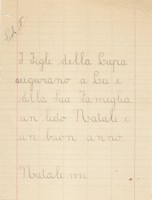 I Figli della Lupa
augurano a Lei e
alla Sua Famiglia
un lieto Natale e
un buon anno.
Natale